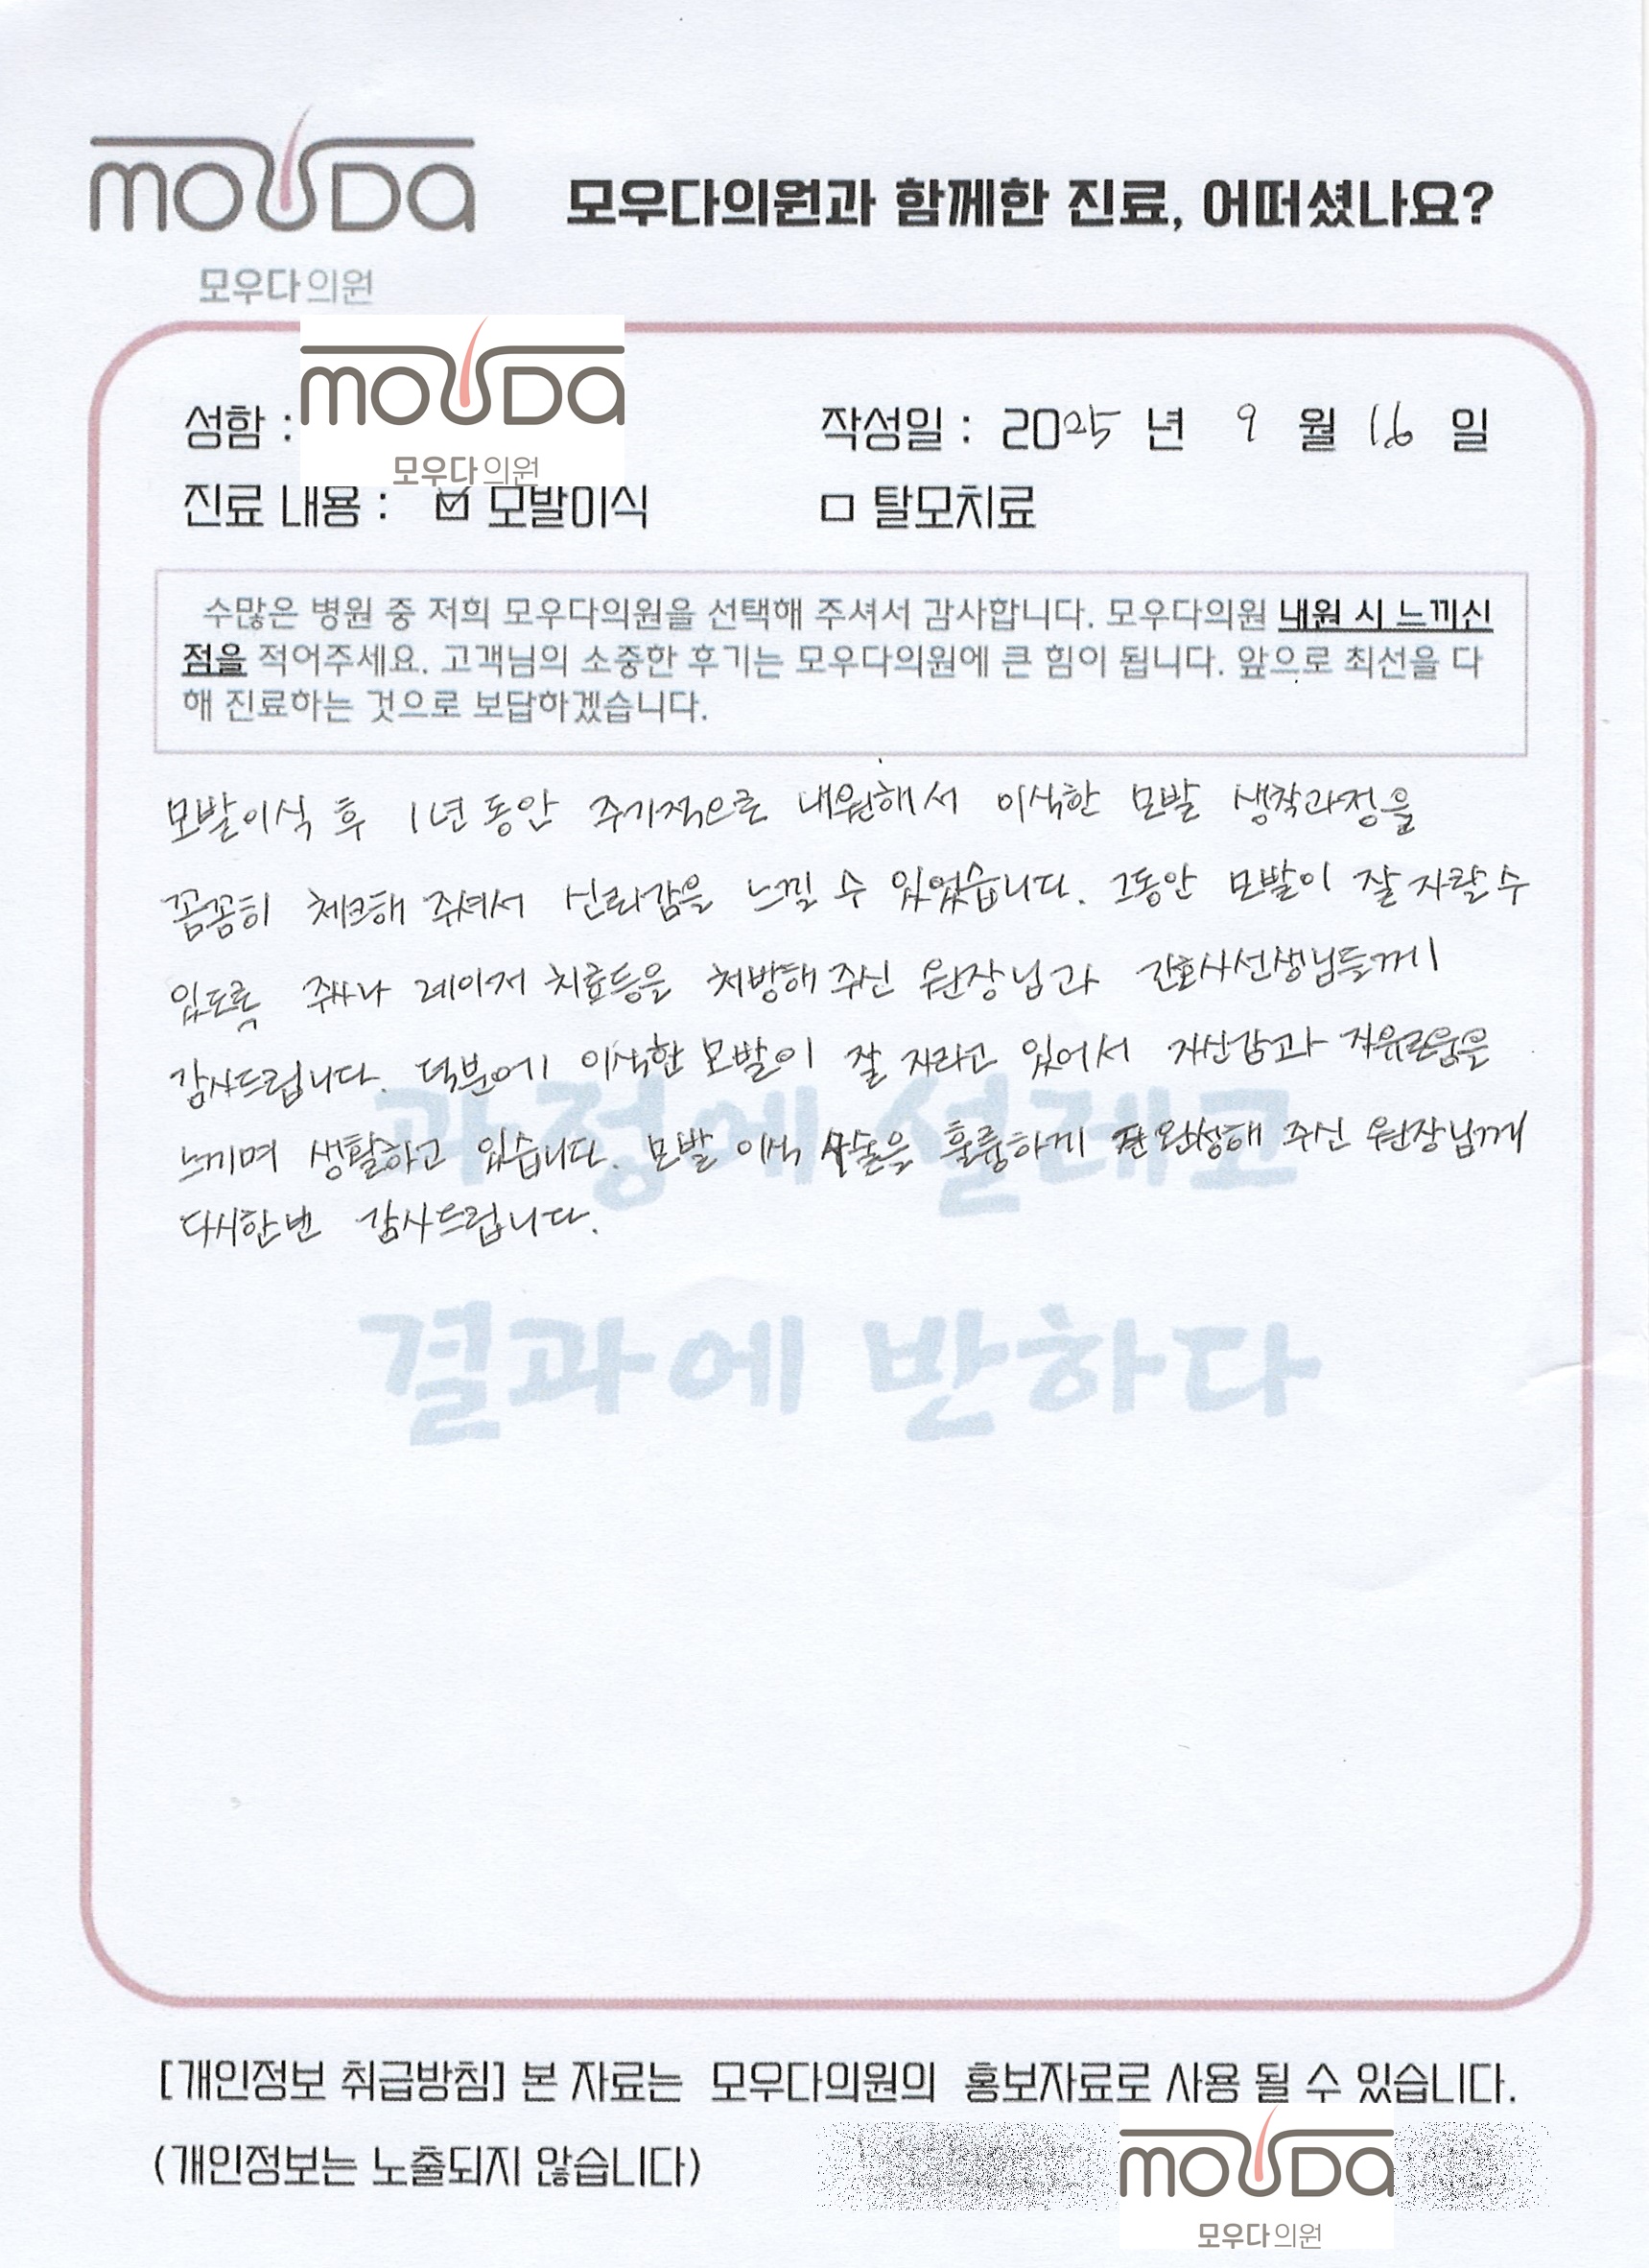 mouDa
모우다의원과 함께한 진료, 어떠셨나요?
모우다의원
mouDa
성함 :
작성일 : 2025 년 9 월 16 일
모우다의원
진료 내용 : ☑ 모발이식 □ 탈모치료
수많은 병원 중 저희 모우다의원을 선택해 주셔서 감사합니다. 모우다의원 내원 시 느끼신
점을 적어주세요. 고객님의 소중한 후기는 모우다의원에 큰 힘이 됩니다. 앞으로 최선을 다
해 진료하는 것으로 보답하겠습니다.
모발이식 후 1년 동안 주기적으로 내원해서 이식한 모발 생착과정을
꼼꼼히 체크해 주셔서 신뢰감을 느낄 수 있었습니다. 그동안 모발이 잘 자랄 수
있도록 주사나 레이저 치료등을 처방해 주신 원장님과 간호사선생님들께
감사드립니다. 덕분에 이식한 모발이 잘 자라고 있어서 자신감과 자유로움을
느끼며 생활하고 있습니다. 모발 이식 수술을 훌륭하게 완성해 주신 원장님께
다시한번 감사드립니다.
과정에 설레고
결과에 반하다
[개인정보 취급방침] 본 자료는 모우다의원의 홍보자료로 사용 될 수 있습니다.
(개인정보는 노출되지 않습니다)
mouDa
모우다의원